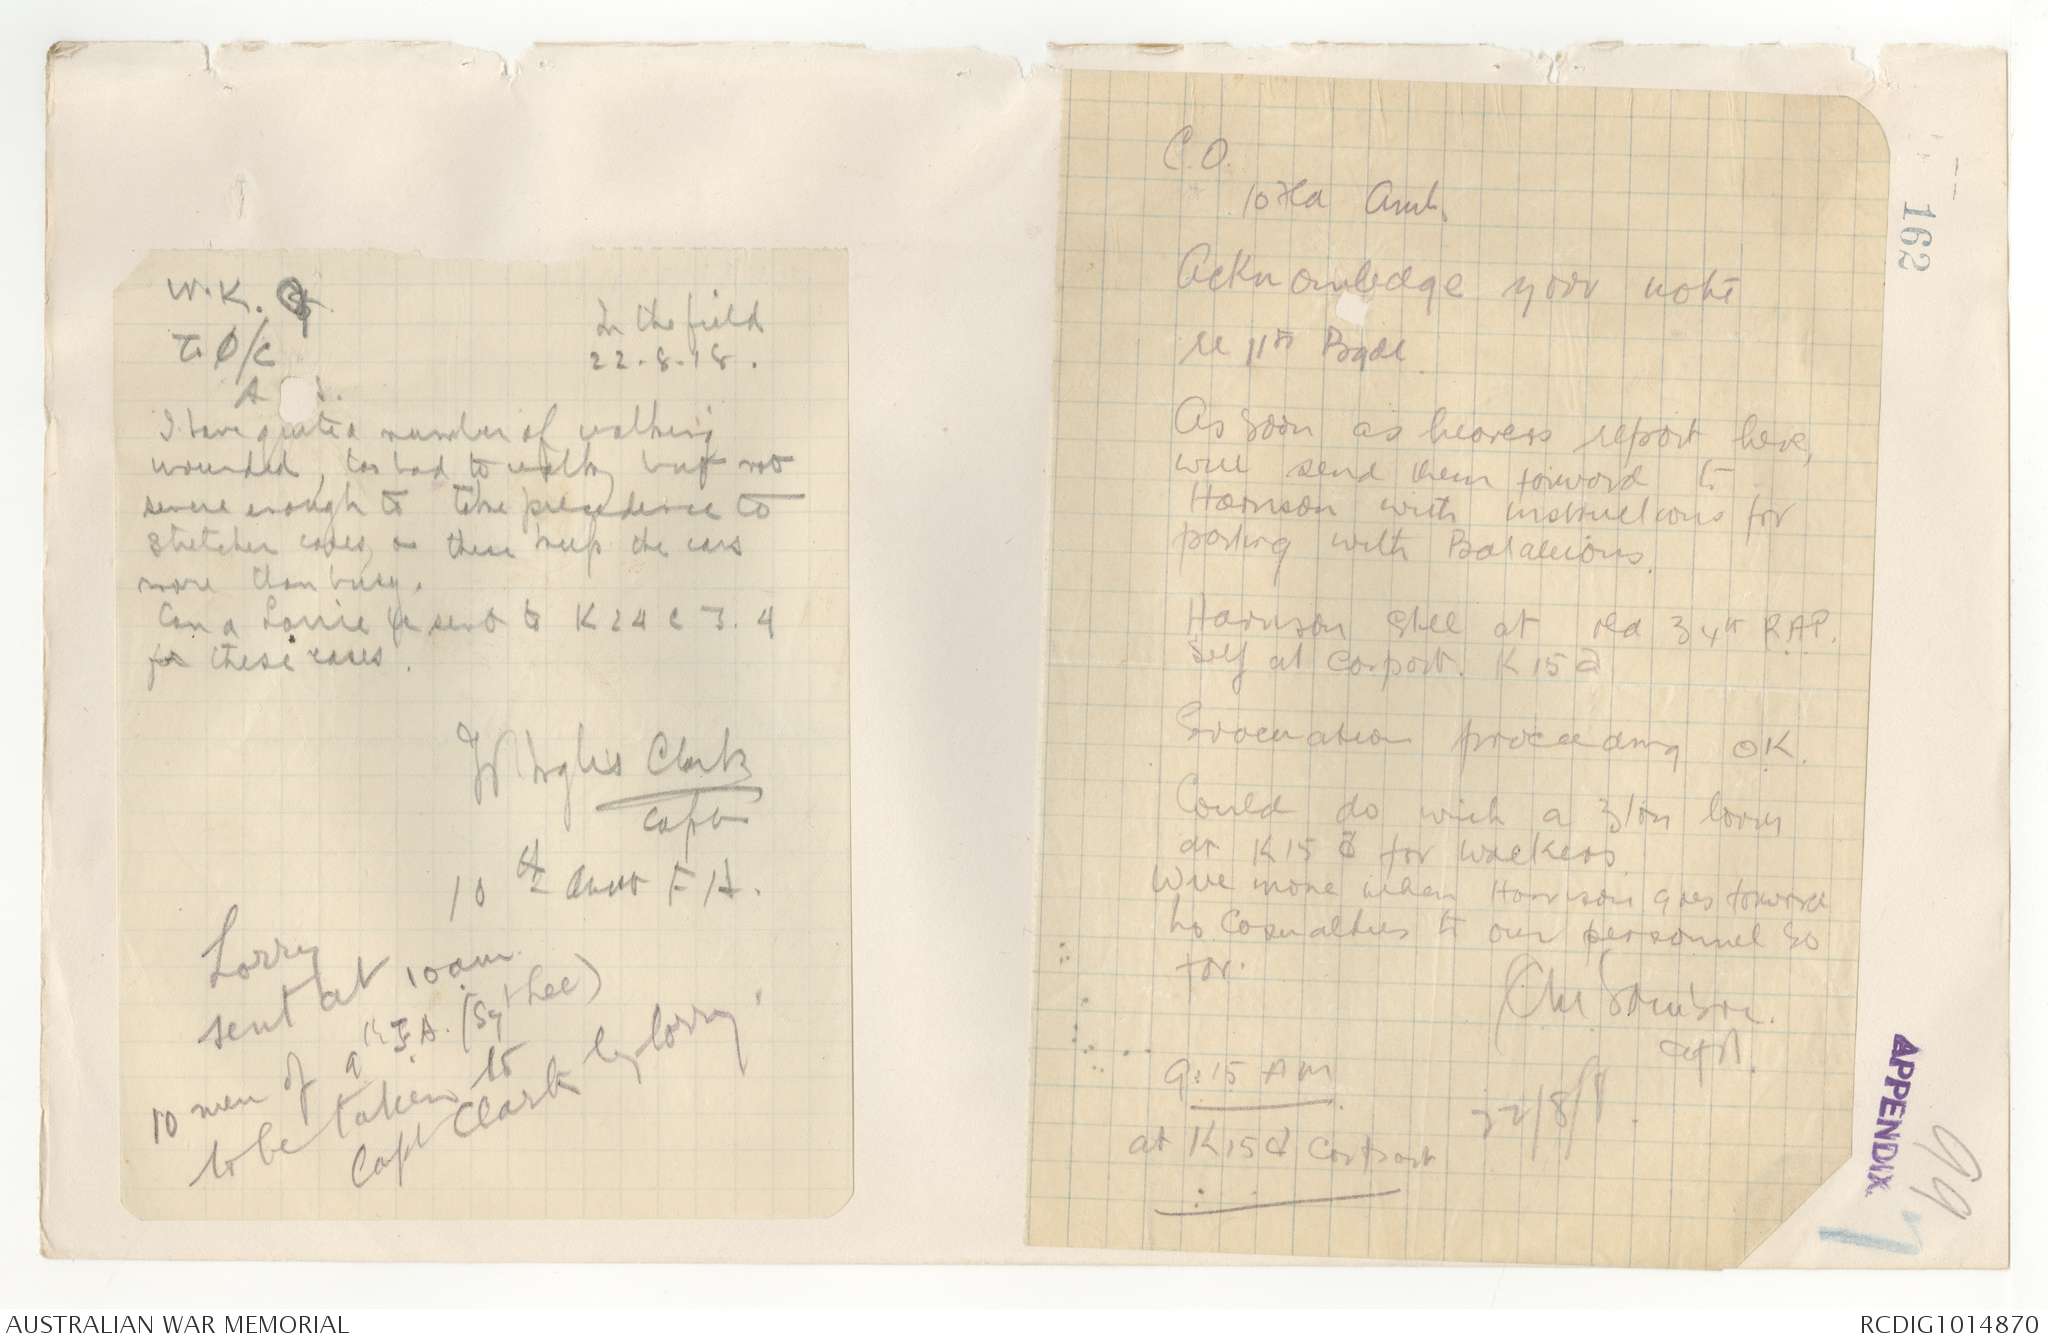 W.K.
To O/C
A
In the field
22-8-18.
I have quite a number of walking
wounded, too bad to walk, but not
severe enough to take precedence to
stretcher cases, as these keep the cars
more than busy.
Can a Lorrie be sent to K24 c 7.4
for these cases.
Inglis Clark
Capt
10th Aust F A.
Lorry
sent at 10 am.
10 men of 9th F.A. (Sgt Lee)
to be taken to
Capt Clark by lorry
C.O.
10 Fld Amb.
Acknowledge your note
re 11th Bgde.
As soon as bearers report here,
will send them forward to
Harrison with instructions for
posting with Battalions.
Harrison still at old 34th R.A.P.
Self at Carpost. K15d
Evacuation proceeding OK.
Could do with a 3 ton lorry
at K15d for walkers
Wire more when Harrison goes forward
No Casualties to our personnel so
far.
Capt.
9:15 AM
22/8/18.
at K15d Carpost
162
APPENDIX
99
AUSTRALIAN WAR MEMORIAL
RCDIG1014870